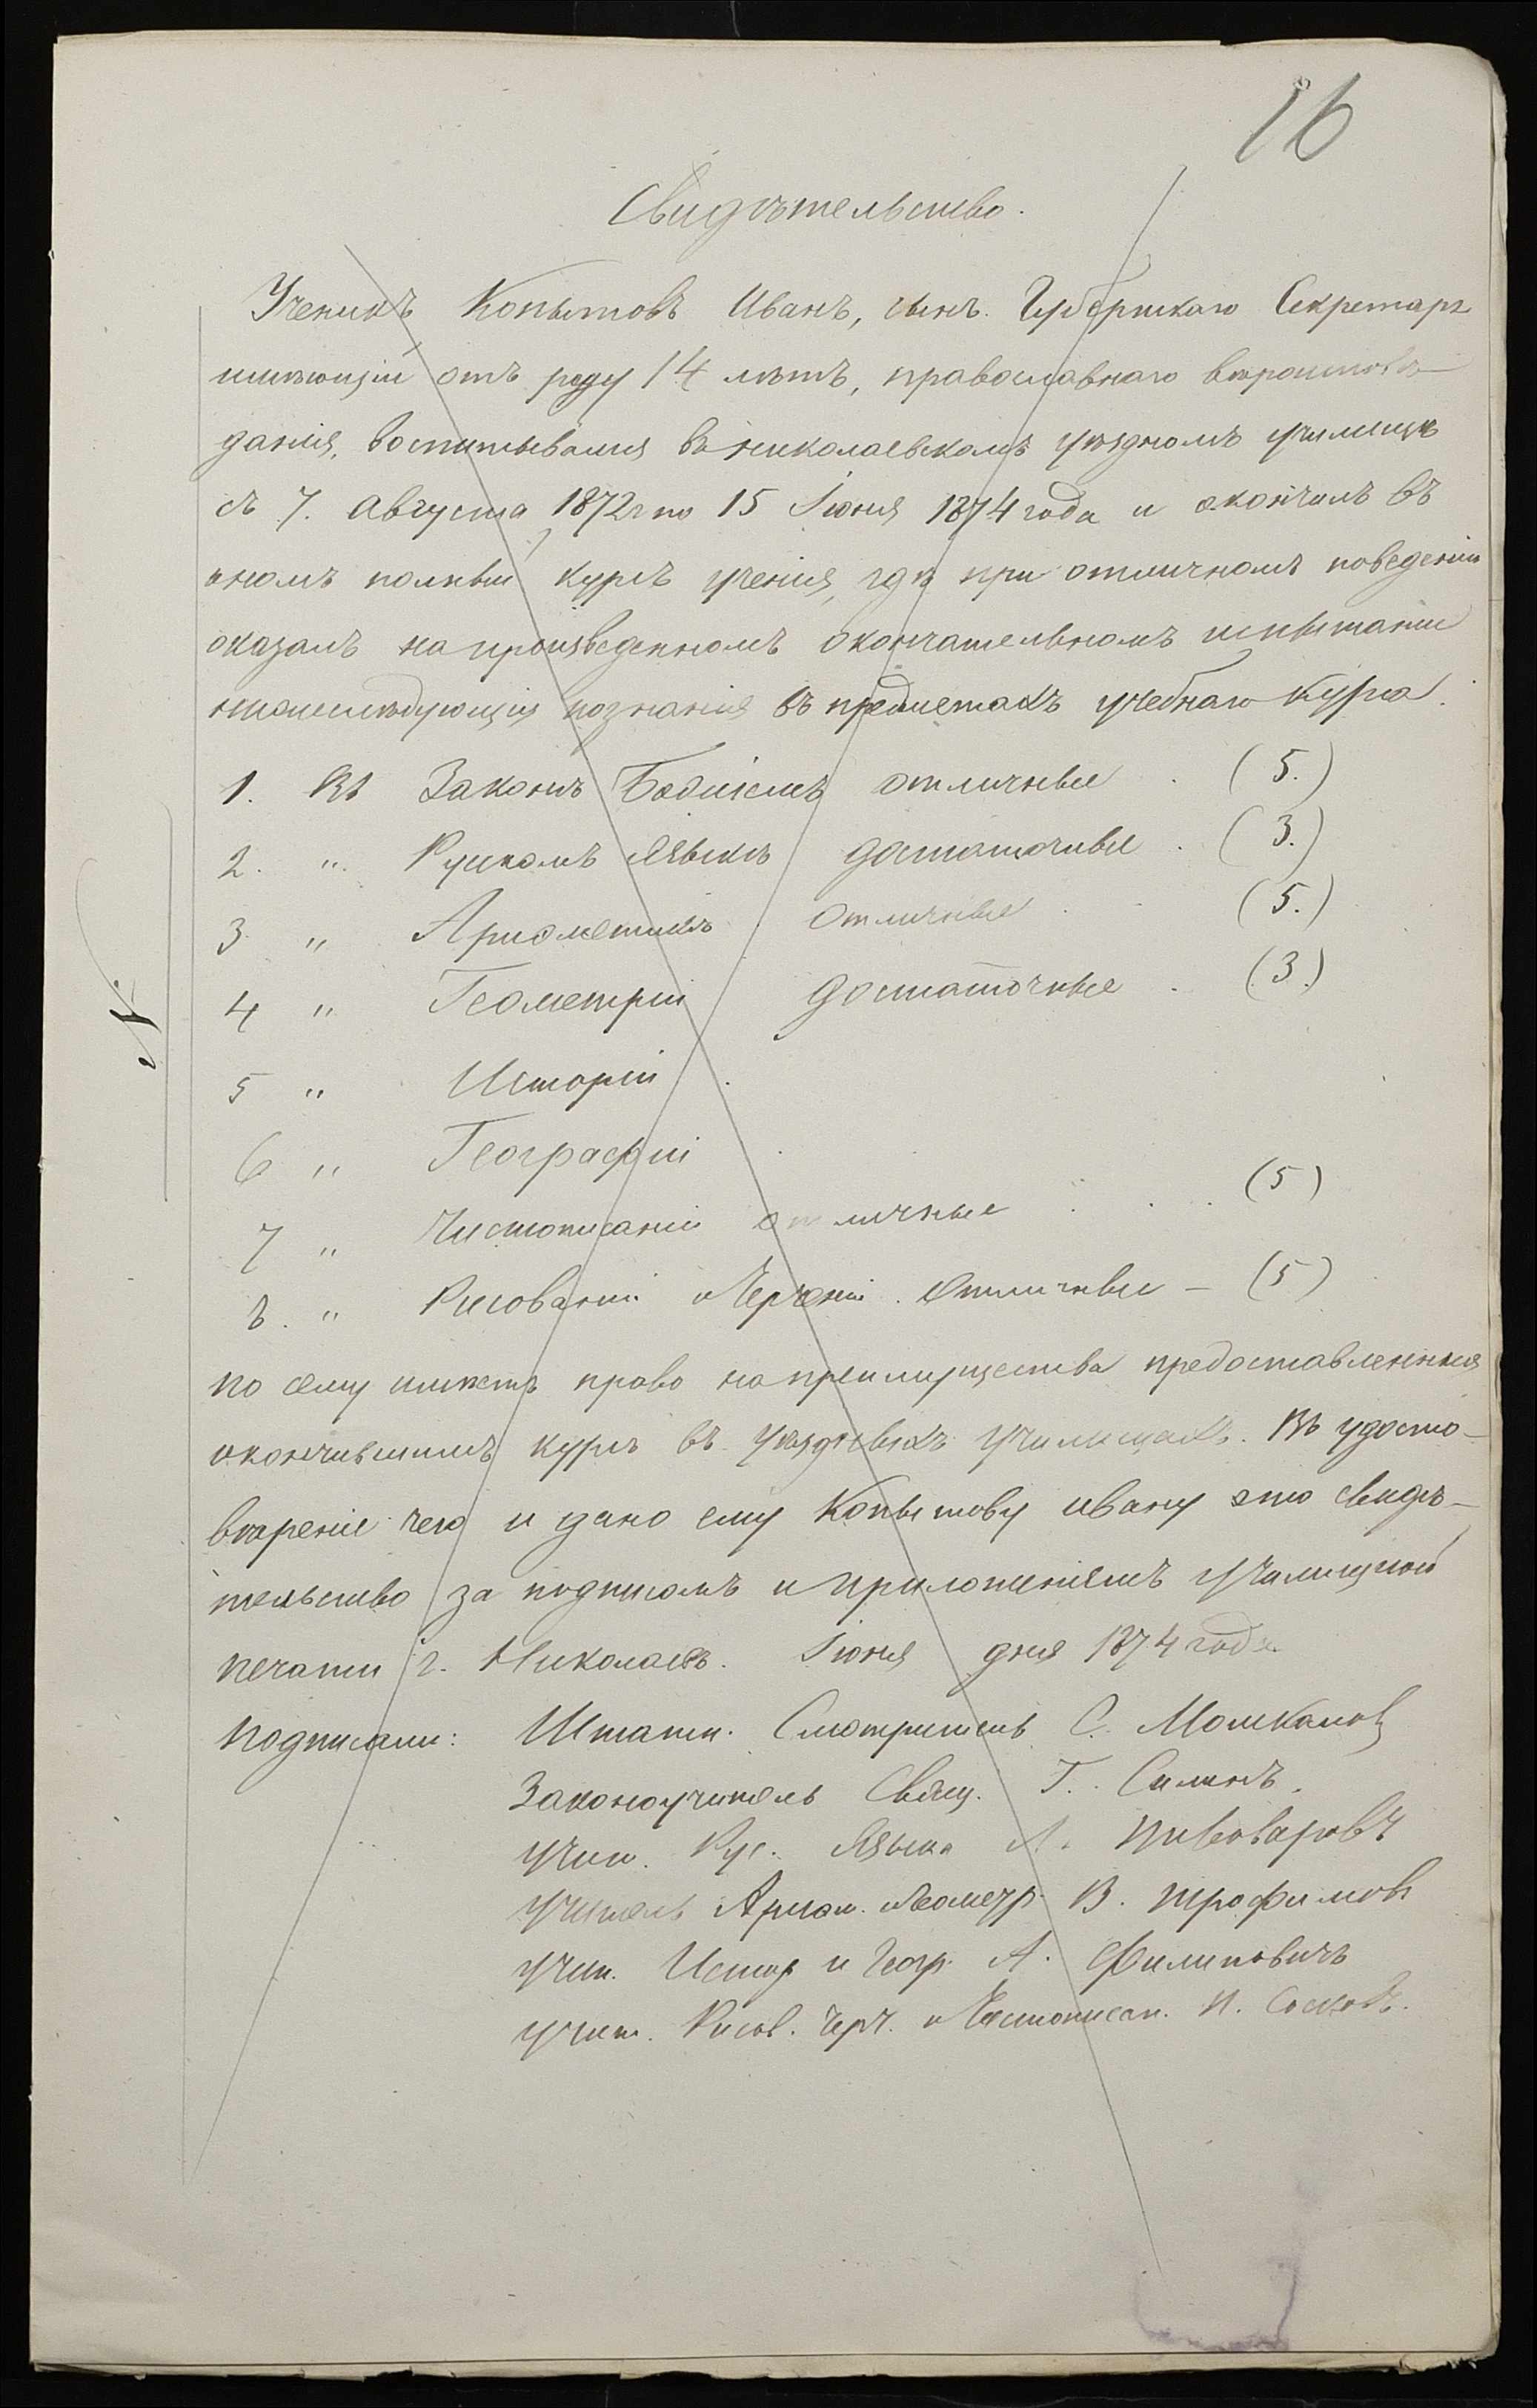 16
Свидѣтельство.
Ученикъ Копытовъ Иванъ, сынъ Губернскаго Секретаря
имѣющій отъ роду 14 лѣтъ, православнаго вѣроисповѣ-
данія, воспитывался въ николаевскомъ уѣздномъ училищѣ
съ 7. Августа 1872 г по 15 Іюня 1874 года и окончилъ въ
ономъ полный курсъ ученія, гдѣ при отличномъ поведеніи
оказалъ на произведенномъ окончательномъ испытаніи
нижеслѣдующія познанія въ предметахъ учебнаго курса.
1. Въ Законѣ Божіемъ отличные . (5.)
2. " Русскомъ Языкѣ достаточные . (3.)
3 " Ариѳметикѣ Отличные . . (5.)
4 " Геометріи достаточные . (3.)
5 " Исторіи .
6 " Географіи .
7 " Чистописаніи отличные . . . (5)
8. " Рисованіи и Черченіи . Отличные – (5)
по сему имѣетъ право на преимущества предоставленныя
окончившимъ курсъ въ уѣздныхъ училищахъ. Въ удосто-
вѣреніе чего и дано ему Копытову ивану это свидѣ-
тельство за подписомъ и приложеніемъ училищной
печати г. Николаевъ. Іюня дня 1874 года.
Подписали: Штатн. Смотритель С. Мошкалов
Законоучитель Свящ. Г. Силинъ.
учит. Рус. Языка А. Пивоваровъ
учитель Ариѳм. и Геометр. В. Трофимовъ
учит. Истор и Геогр. А. Филиповичъ
учит. Рисов. Черч. и Чистописан. И. Сосковъ.